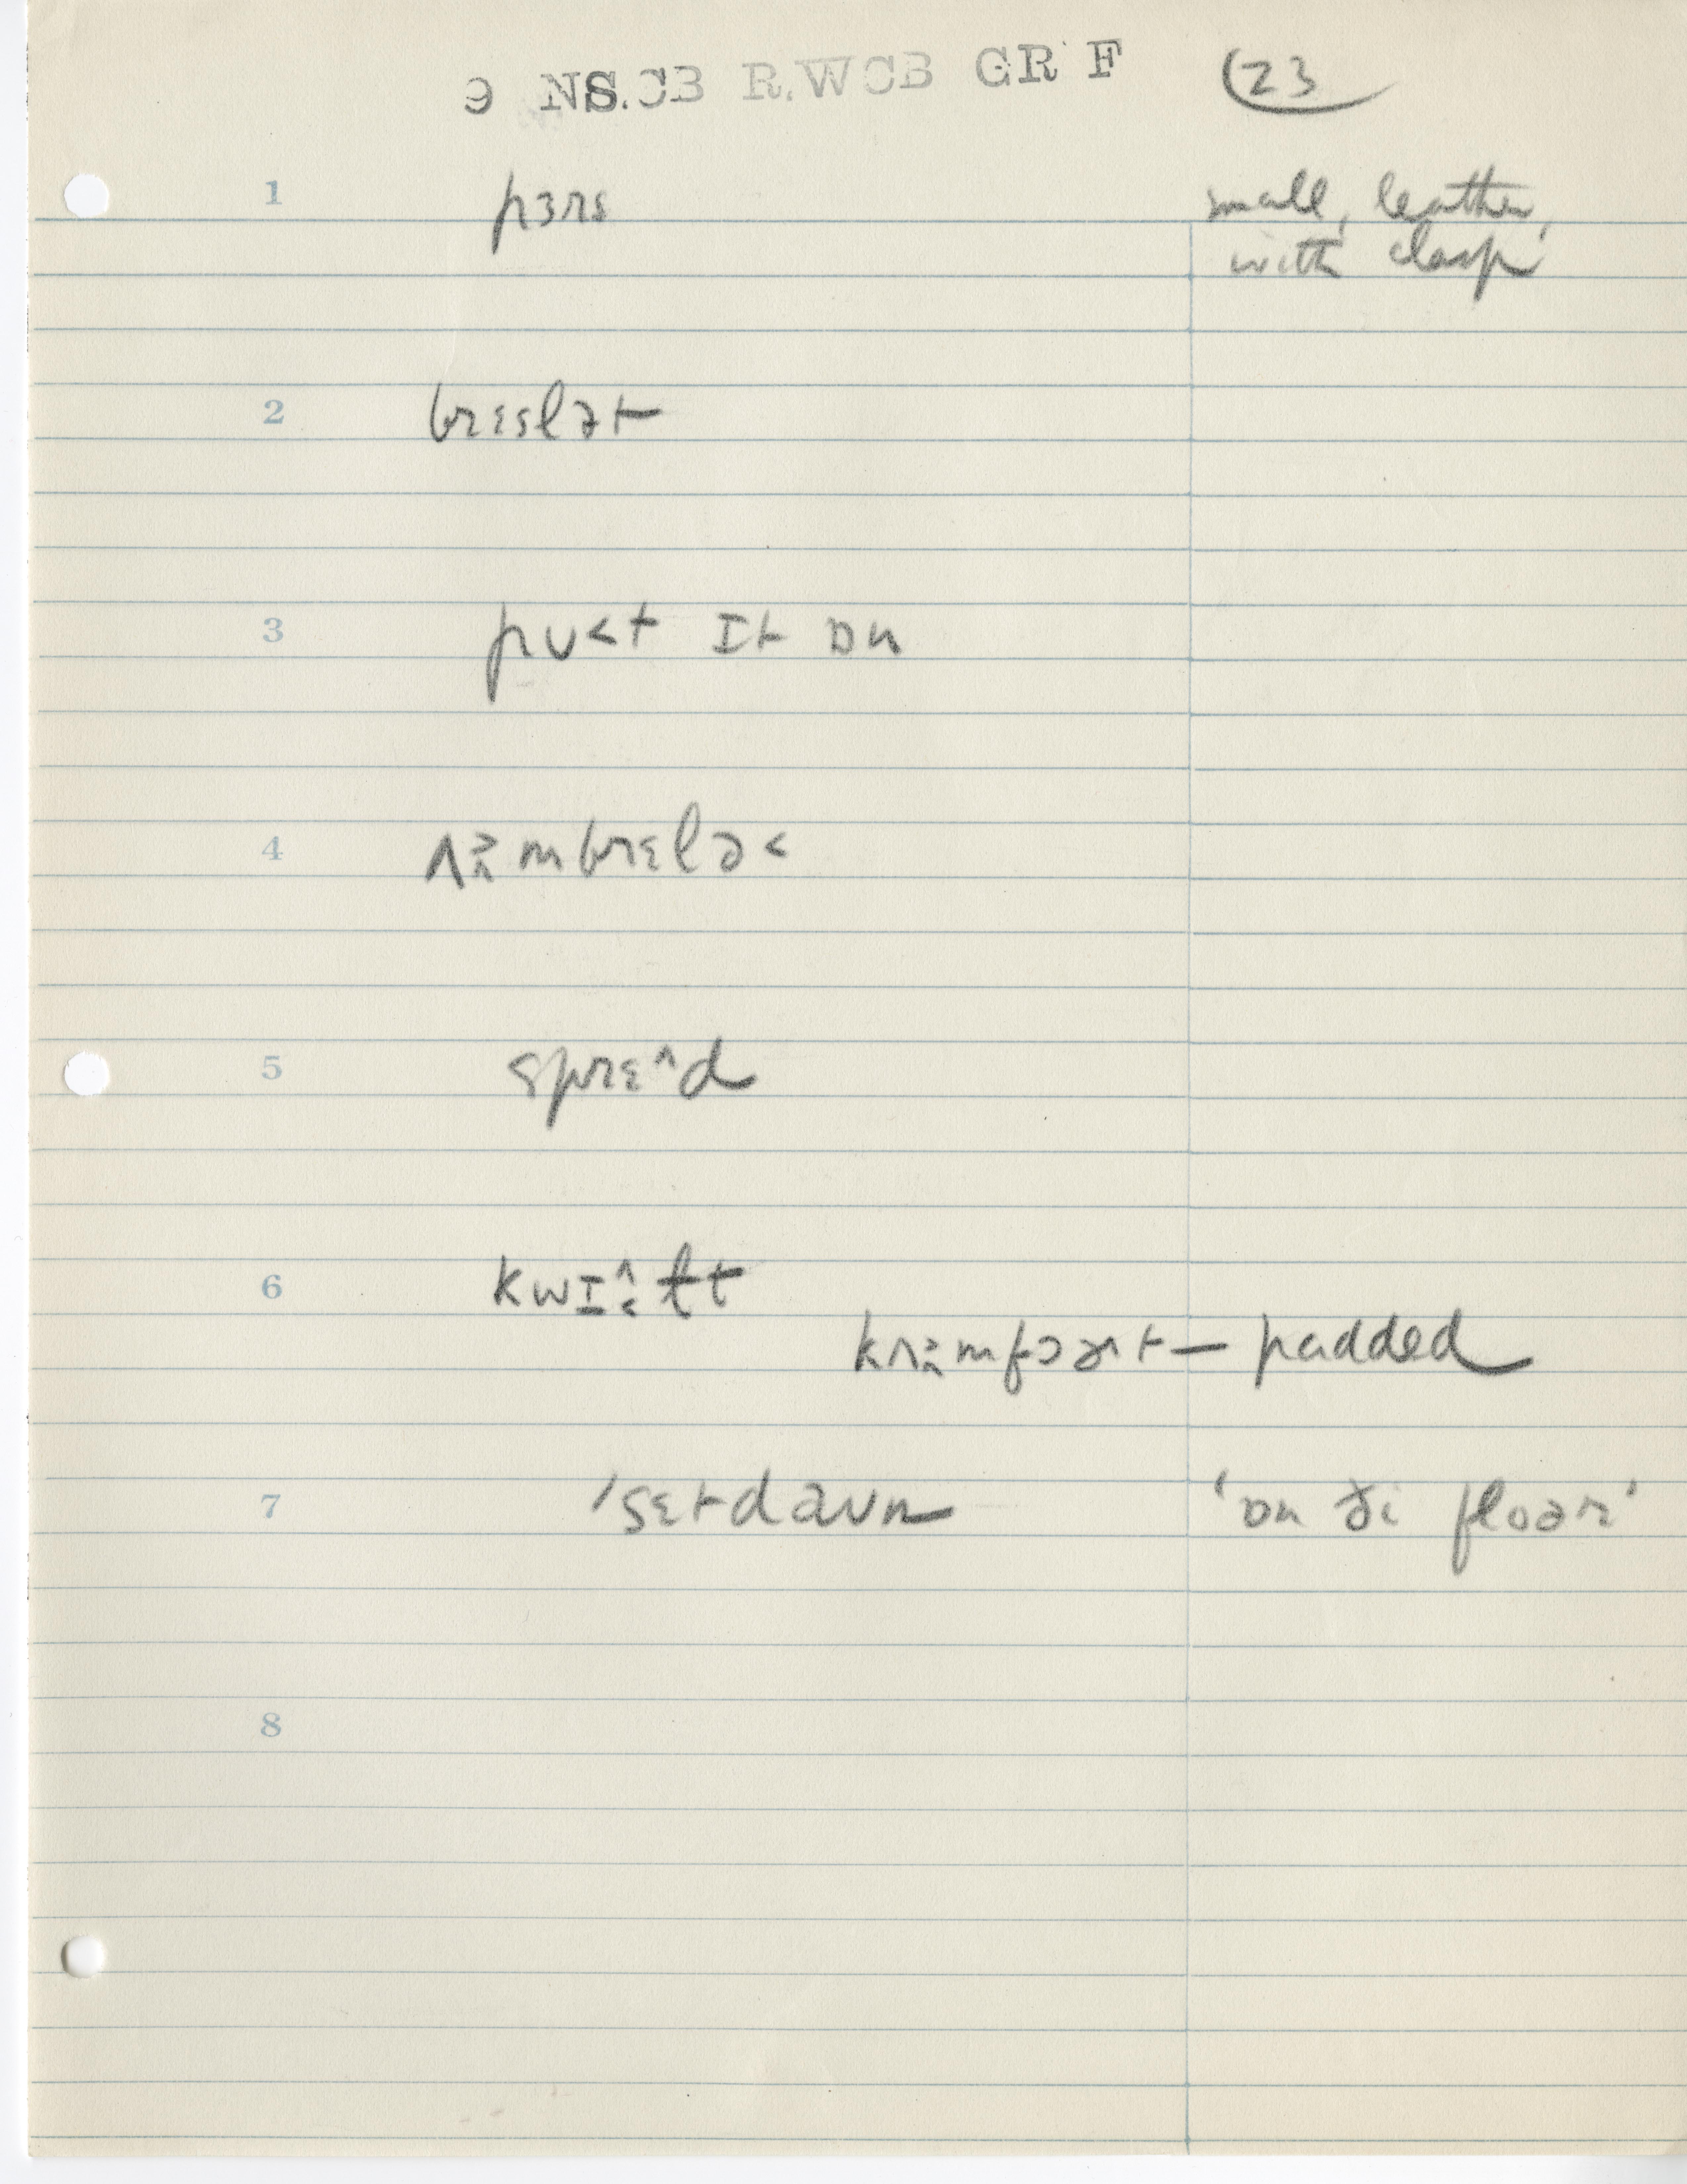 9 NS.CB R.WCB GR F (23
1 pɜrs small, leather,
with clasp
2 brɛslət
3 pʊ<t ɪt ɒn
4 ʌ˃̃mbrɛlə<
5 sprɛ^d
6 kwɪ^˂ɫt
kʌ˃̃mfɔɚt — padded
7 'sɛtdaʊn 'ɒn ði floər'
8